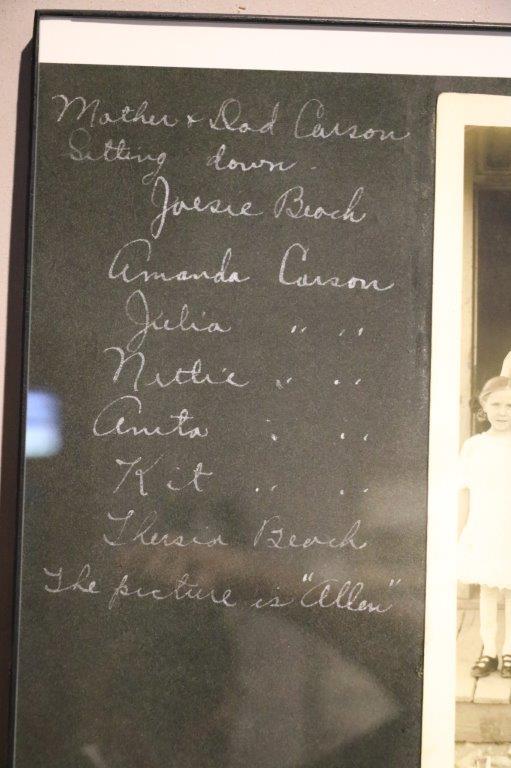 Mother & Dad Carson
Sitting down.
Joesie Beach
Amanda Carson
Julia " "
Nettie " "
Anita " "
Kit " "
Thersia Beach
The picture is "Allen"